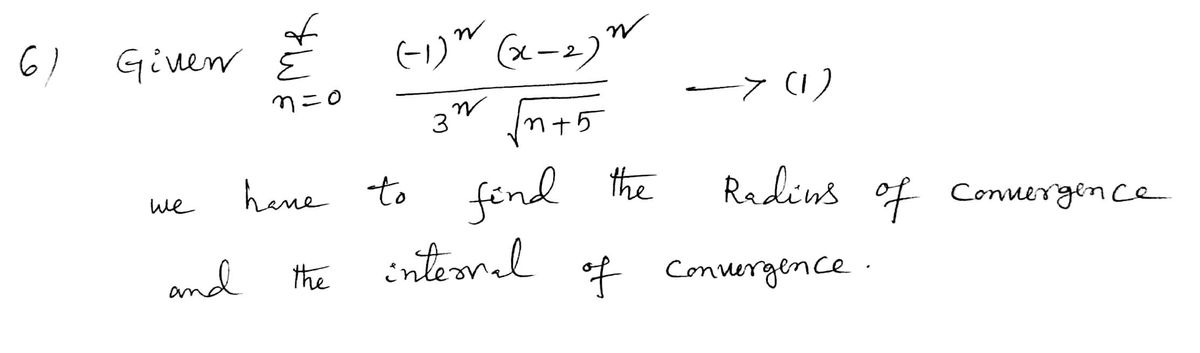 6) Given ∑_{n=0}^{∞} \frac{(-1)^n (x-2)^n}{3^n \sqrt{n+5}} → (1)
we have to find the Radius of convergence
and the interval of convergence.